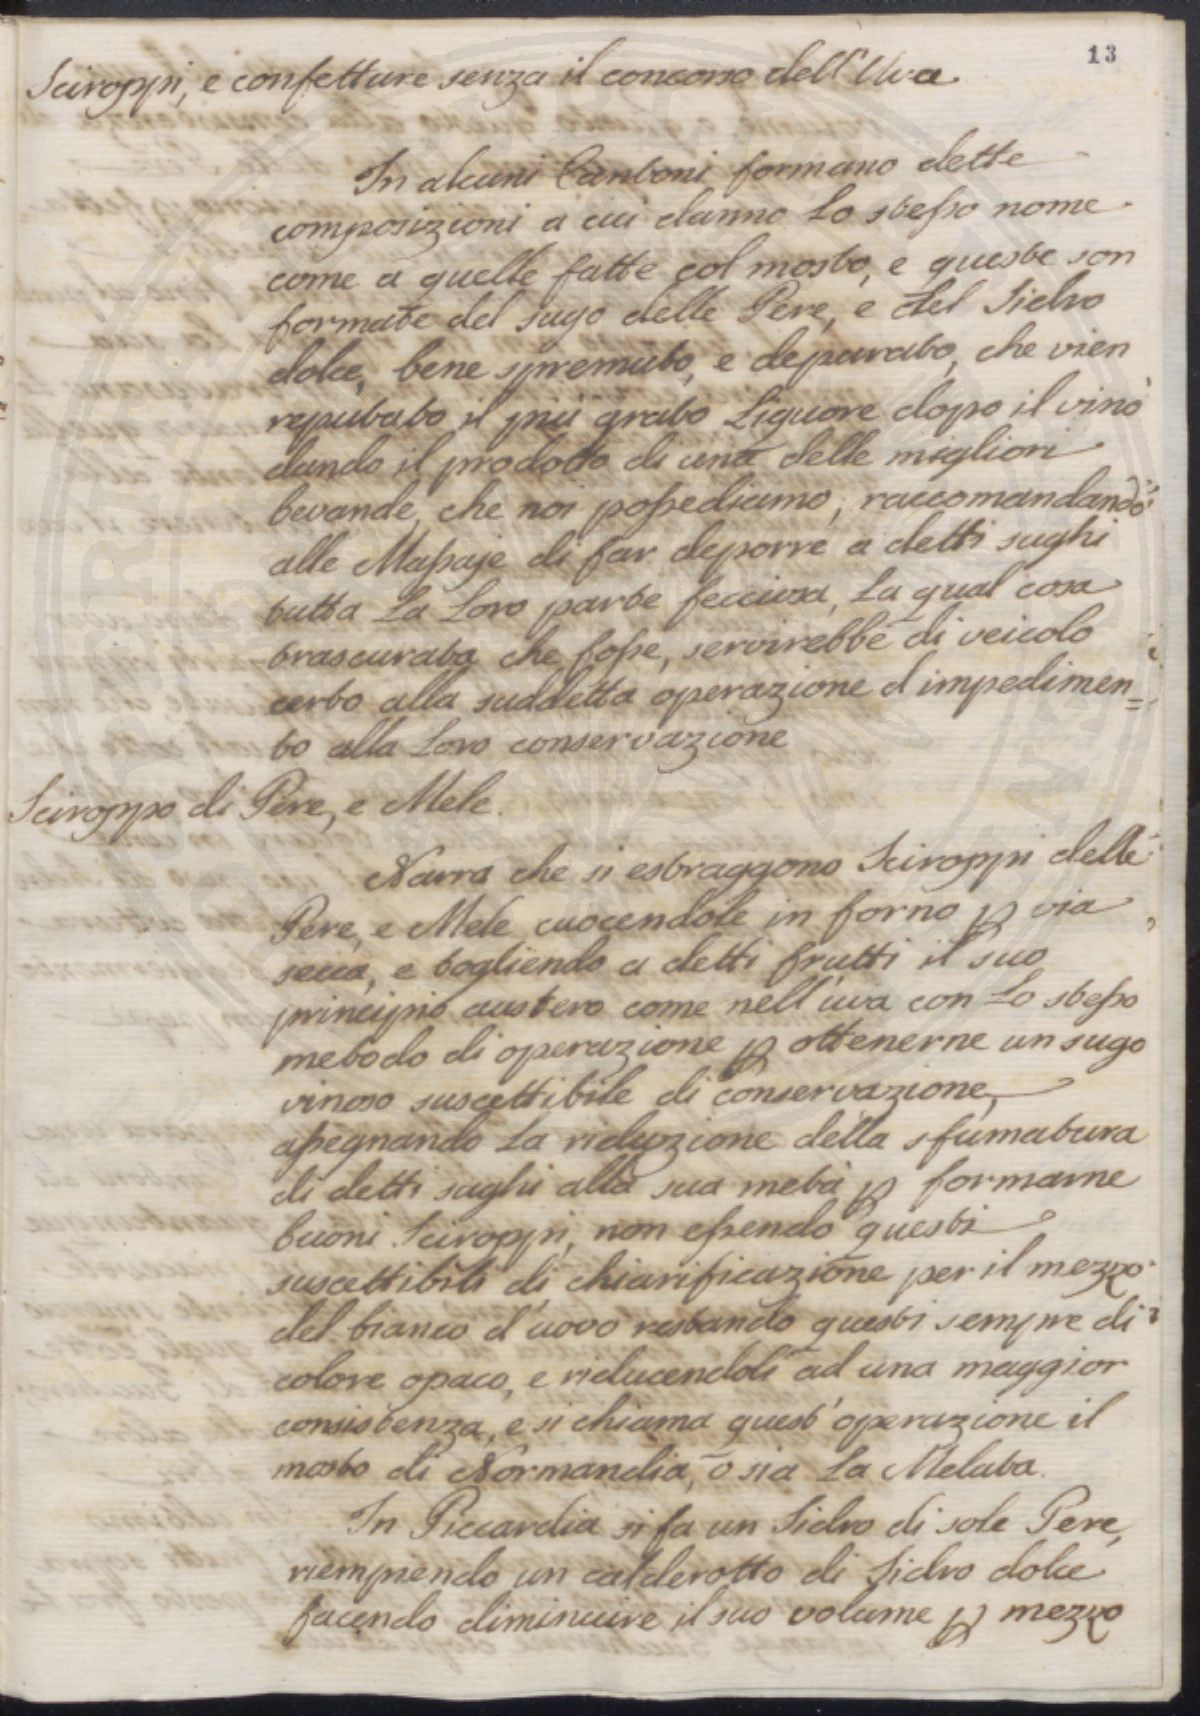 13
Sciroppi, e confetture senza il concorso dell'Uva
In alcuni Cantoni formano dette
composizioni a cui danno Lo stesso nome
come a quelle fatte col mosto, e queste son
formate del sugo delle Pere, e del Sidro
dolce, bene spremuto, e depurato, che vien
reputato il più grato Liquore dopo il vino
dando il prodotto di una delle migliori
bevande, che noi possediamo; raccomandando
alle Massaje di far deporre a detti sughi
tutta La Loro parte fecciosa, La qual cosa
trascurata che fosse, servirebbe di veicolo
certo alla suddetta operazione d'impedimen=
to alla Loro conservazione
Sciroppo di Pere, e Mele.
Narra che si estraggono Sciroppi delle
Pere, e Mele cuocendole in forno p via
secca, e togliendo a detti frutti il suo
principio austero come nell'uva con Lo stesso
metodo di operazione p ottenerne un sugo
vinoso suscettibile di conservazione,
assegnando La riduzione della sfumatura
di detti sughi alla sua metà p formarne
buoni Sciroppi, non essendo questi
suscettibili di chiarificazione per il mezzo
del bianco d'uovo restando questi sempre di
colore opaco, e riducendoli ad una maggior
consistenza, e si chiama quest'operazione il
mosto di Normandia, o sia La Melata.
In Piccardia si fa un Sidro di sole Pere,
riempiendo un calderotto di Sidro dolce
facendo diminuire il suo volume p mezzo